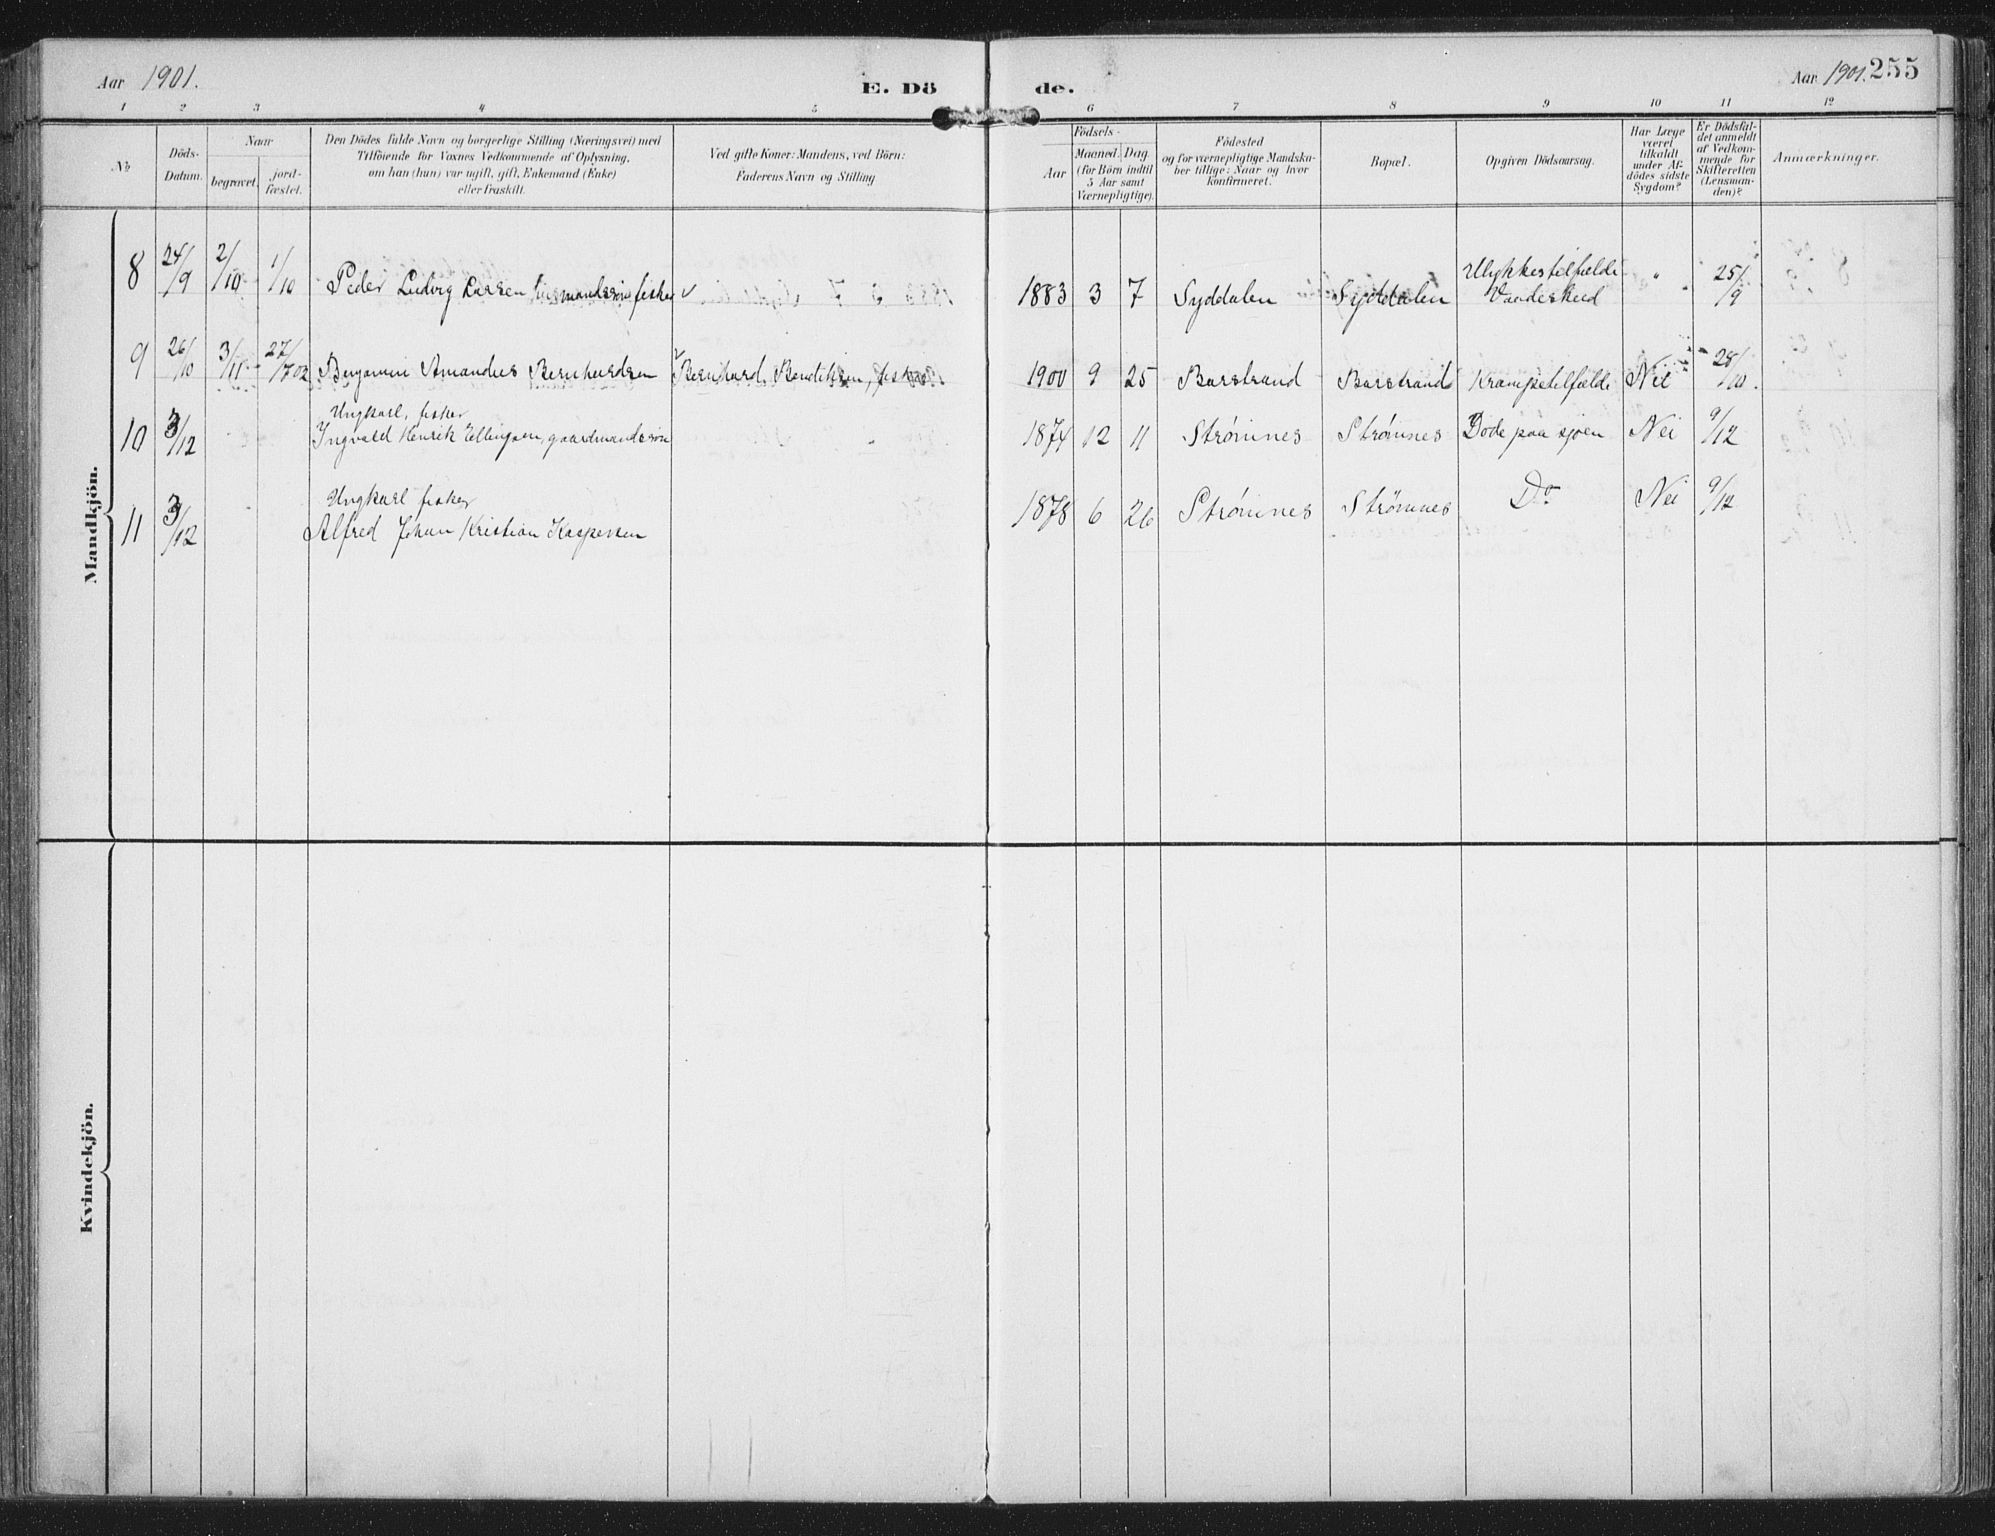 Aar 1901.
E. Dö
de.
Aar 1901. 255
1 2 3 4 5 6 7 8 9 10 11 12
№
Döds-
Datum.
Naar
begravet.
jord-
fæstet.
Den Dödes fulde Navn og borgerlige Stilling (Næringsvei) med
Tilföiende for Voxnes Vedkommende af Oplysning,
om han (hun) var ugift, gift, Enkemand (Enke)
eller fraskilt.
Ved gifte Koner: Mandens, ved Börn:
Faderens Navn og Stilling
Födsels-
Aar
Maaned. Dag.
(for Börn indtil
5 Aar samt
Værnepligtige).
Födested
og for værnepligtige Mandska-
ber tillige: Naar og hvor
konfirmeret.
Bopæl.
Opgiven Dödsaarsag.
Har Læge
været
tilkaldt
under Af-
dödes sidste
Sygdom?
Er Dödsfal-
det anmeldt
af Vedkom-
mende for
Skifteretten
(Lensman-
den)?
Anmærkninger.
Mandkjön.
8 24/9 2/10 1/10 Peder Ludvig Larsen husmandssøn fisker 1883 3 7 Syddalen Syddalen Ulykkestilfælde " 25/9
Vaadeskud
9 26/10 3/11 27/7 02 Benjamin Amandus Bernhardsen Bernhard Bendiksen, fisker 1900 9 25 Barstrand Barstrand Krampetilfælde Nei 28/10.
Ungkarl, fisker
10 3/12 Ingvald Henrik Ellingsen, gaardmandssøn 1874 12 11 Strømnes Strømnes Døde paa sjøen Nei 9/12
Ungkarl fisker
11 3/12 Alfred Johan Kristian Kaspersen 1878 6 26 Strømnes Strømnes Do Nei 9/12
Kvindekjön.